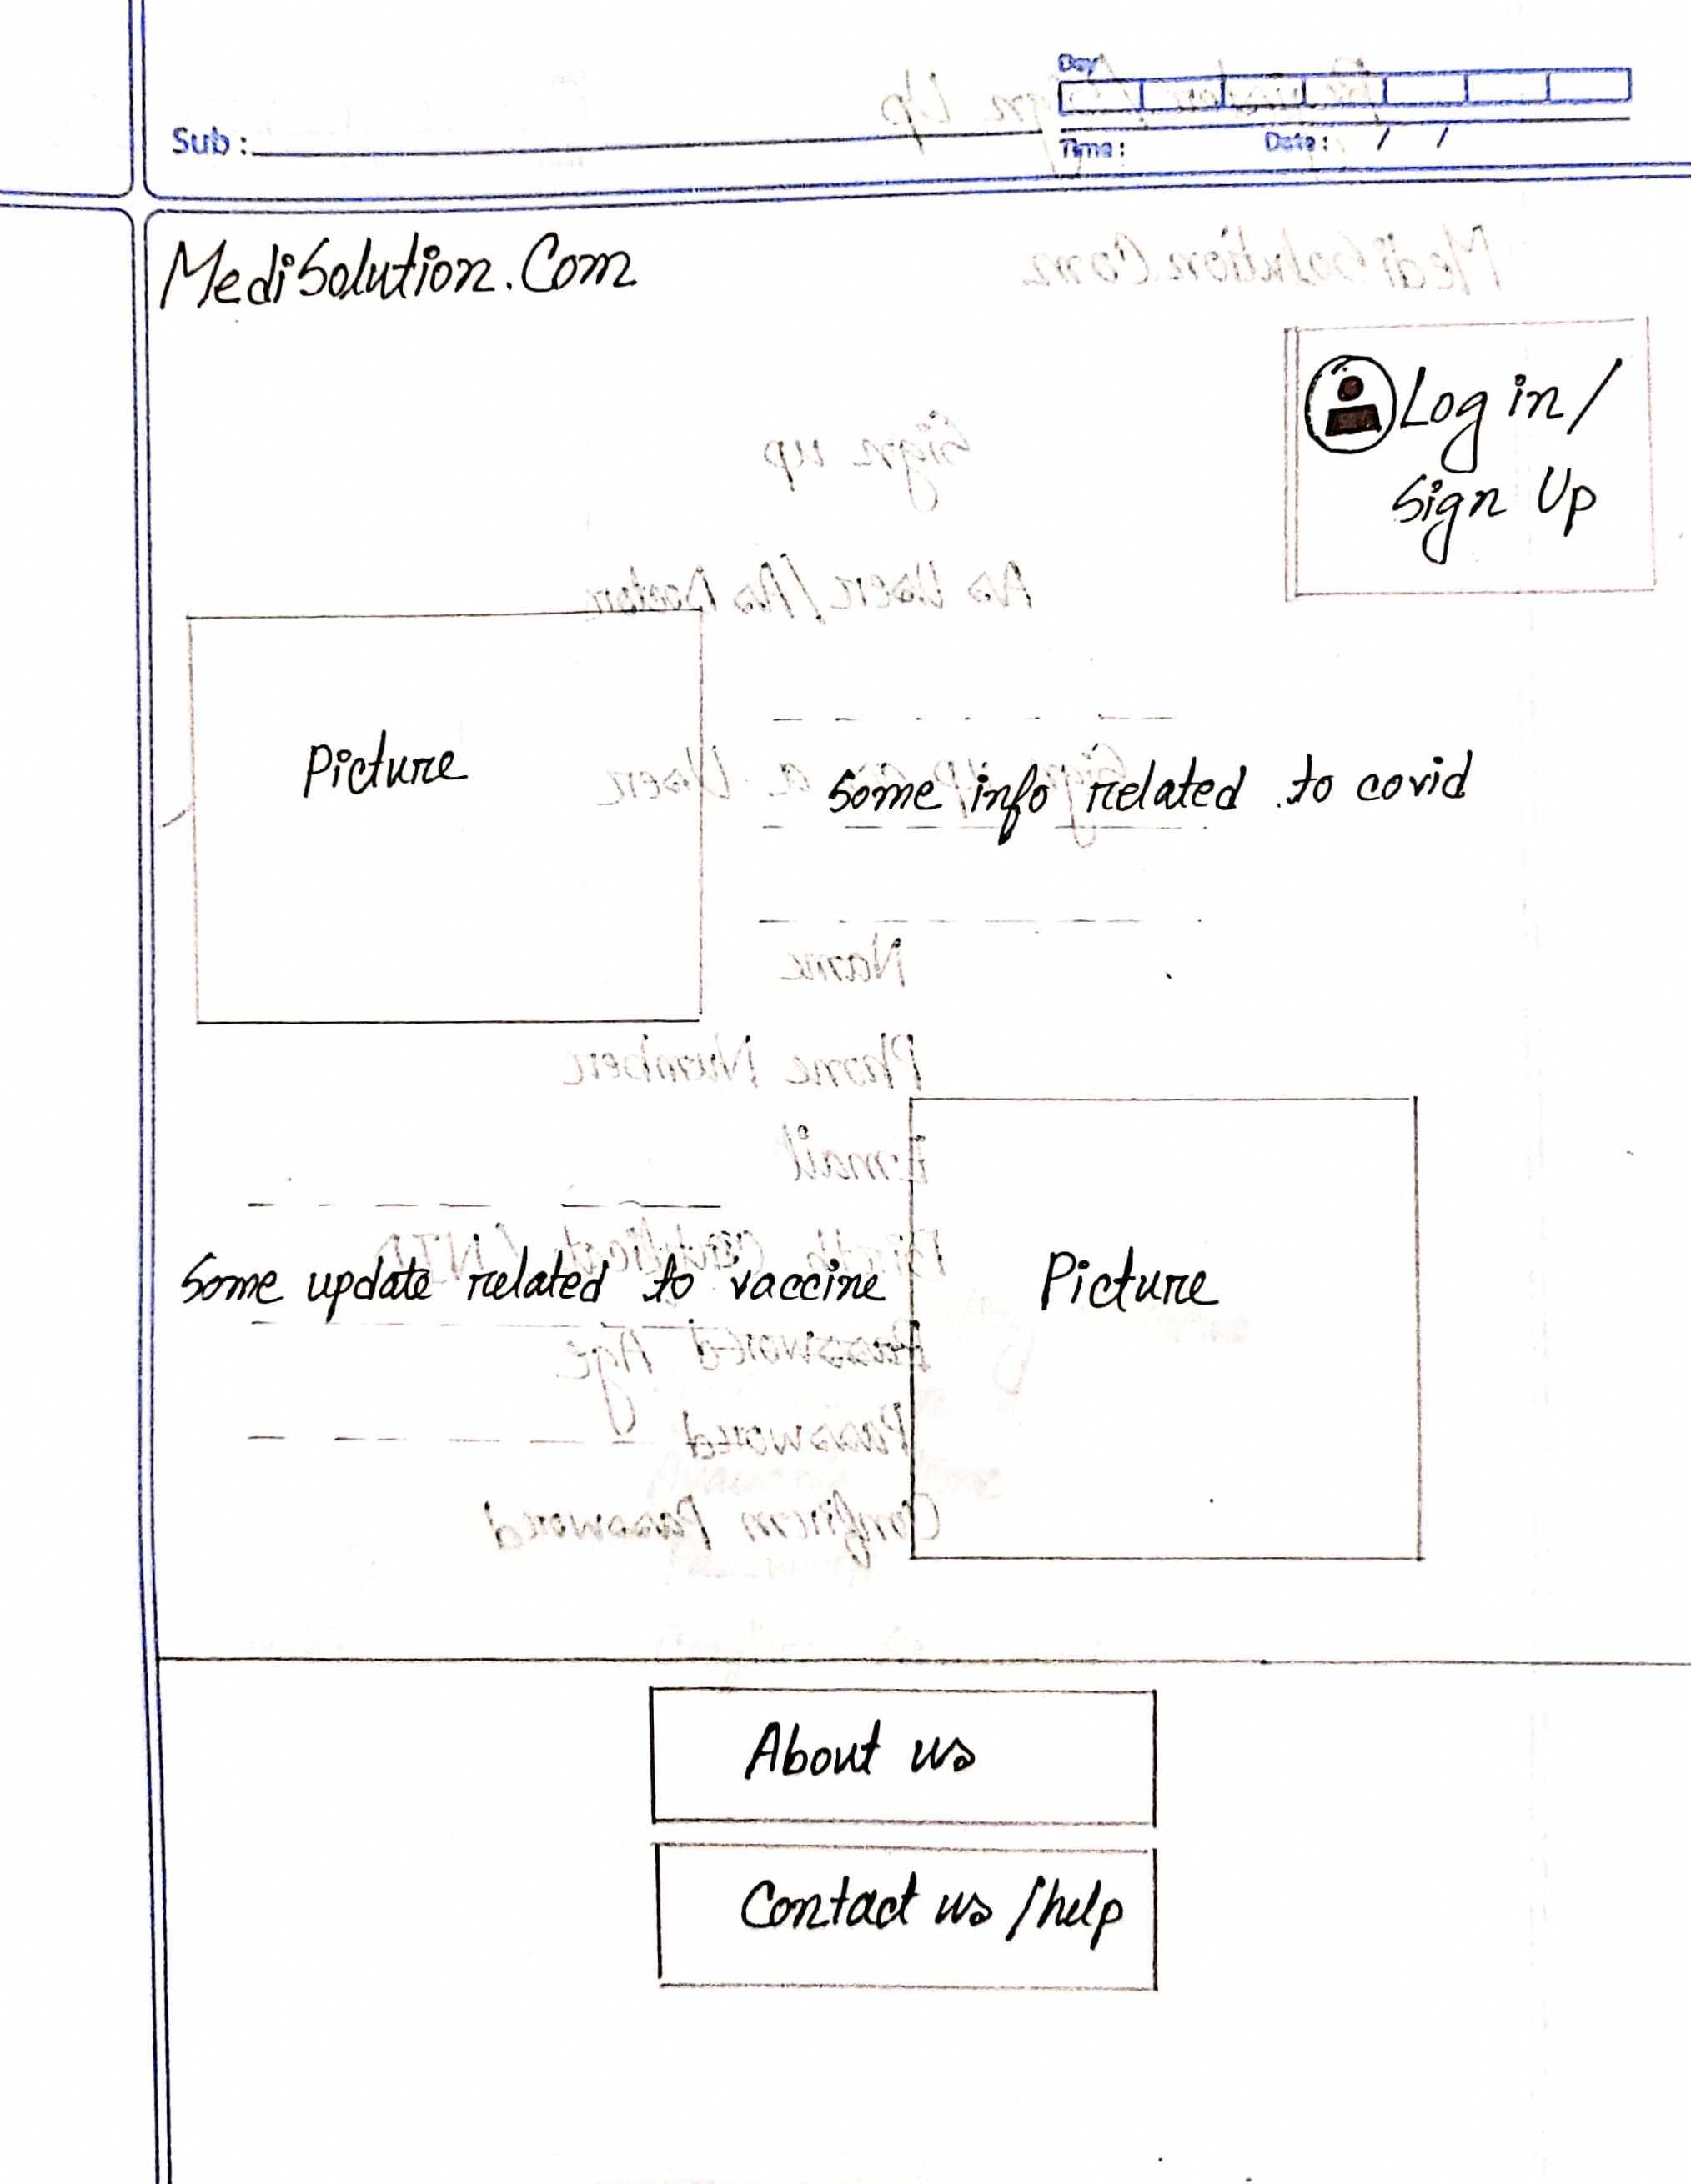 Day
Sub:
Time: Date: / /
MediSolution.Com
Log in/
Sign Up
Picture
Some info related to covid
Some update related to vaccine
Picture
About us
Contact us /help